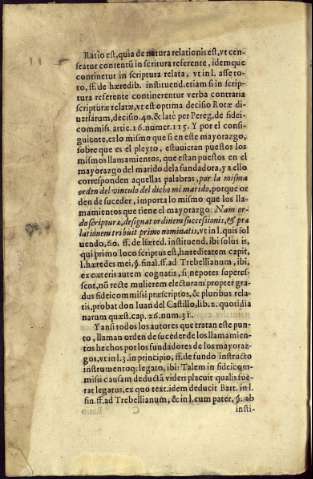 Ratio est, quia de natura relationis est, vt cen-
seatur contentũ in scritura referente, idem que
continetur in scriptura relata, vt in l. asse to-
to, ff. de hæredib. instituend. etiam si in scrip-
tura referente continerentur verba contraria
scripturæ relatæ, vt est optima decisio Rotæ di-
uersarum, decisio. 40. & latè per Pereg. de fidei
commiss. artic. 16. numer. 115. Y por el consi-
guiente, es lo mismo que si en este mayorazgo,
sobre que es el pleyto, estuuieran puestos los
mismos llamamientos, que estan puestos en el
mayorazgo del marido de la fundadora, y a ello
corresponden aquellas palabras, por la misma
orden del vinculo del dicho mi marido, porque or-
den de suceder, importa lo mismo que los lla-
mamientos que tiene el mayorazgo: Nam or-
do scripturæ, designat ordinem successionis, & præ
lationem tribuit primo nominatis, vt in l. quis sol
uendo, 60. ff. de hæred. instituend. ibi solus is,
qui primo loco scriptus est, hæreditatem capit,
l. hæredes mei, §. final. ff. ad Trebellianum, ibi,
ex cæteris autem cognatis, si nepotes superess-
ent, nõ recte mulierem electuram propter gra-
dus fideicommissi præscriptos, & pluribus rela-
tis, probat don Iuan del Castillo, lib. 2. quotidia
narum quæst. cap. 26. num. 31.
Y ansi todos los autores que tratan este pun-
to, llaman orden de suceder de los llamamien-
tos hechos por los fundadores de los mayoraz-
gos, vt in l. 3. in principio, ff. de fundo instructo
instrumentoq; legato, ibi: Talem in fideicom-
missi causam deductã videri placuit qualis fue-
rat legatus, ex quo text. idem deducit Bart. in l.
fin. ff. ad Trebellianum, & in l. cum pater, §. ab
insti-